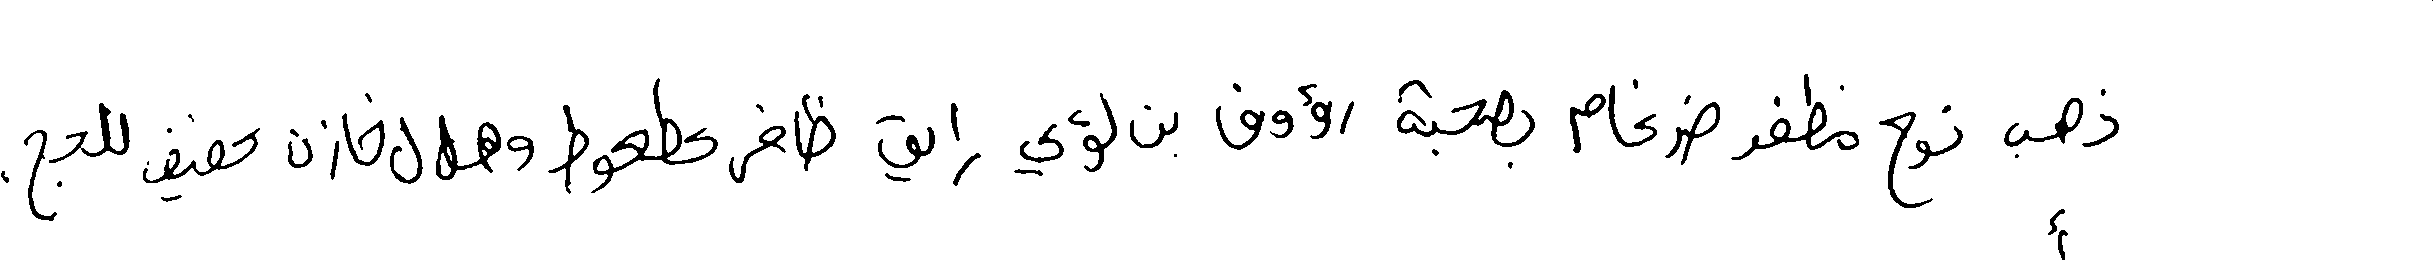 ذهب نوح مظفر ضرغام بصحبة رؤوف بن لؤي رائق ظافر عطعوط وهلال خازن عفيف للحج.
أ